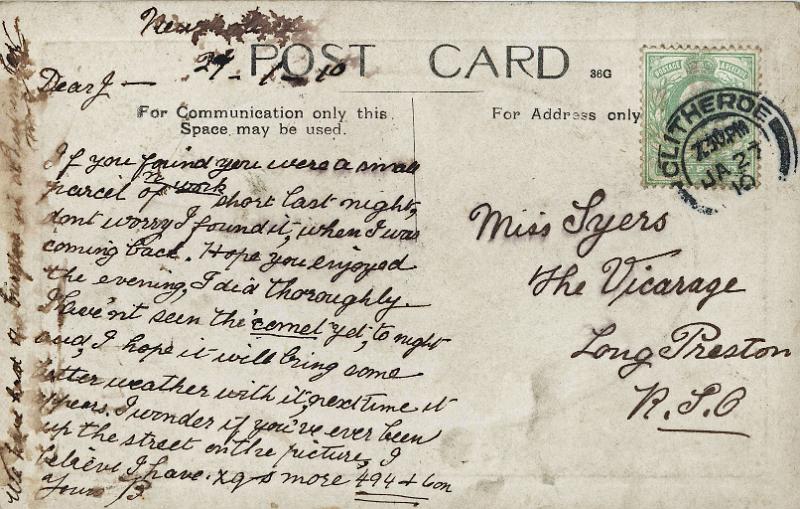 POST CARD
36G
For Communication only this
Space may be used.
For Address only
CLITHEROE
7.30PM
JA 27
10
27 - 1 - 10
Dear J —
If you found you were a small
parcel of work short last night,
dont worry I found it, when I was
coming back. Hope you enjoyed
the evening, I did thoroughly.
Have'nt seen the "comet" yet, to night
and, I hope it will bring some
better weather with it, next time it
appears. I wonder if you've ever been
up the street on the picture, I
believe I have. xq-s more 494 + 6 on
Yours B
We have had
Miss Syers
The Vicarage
Long Preston
R.S.O